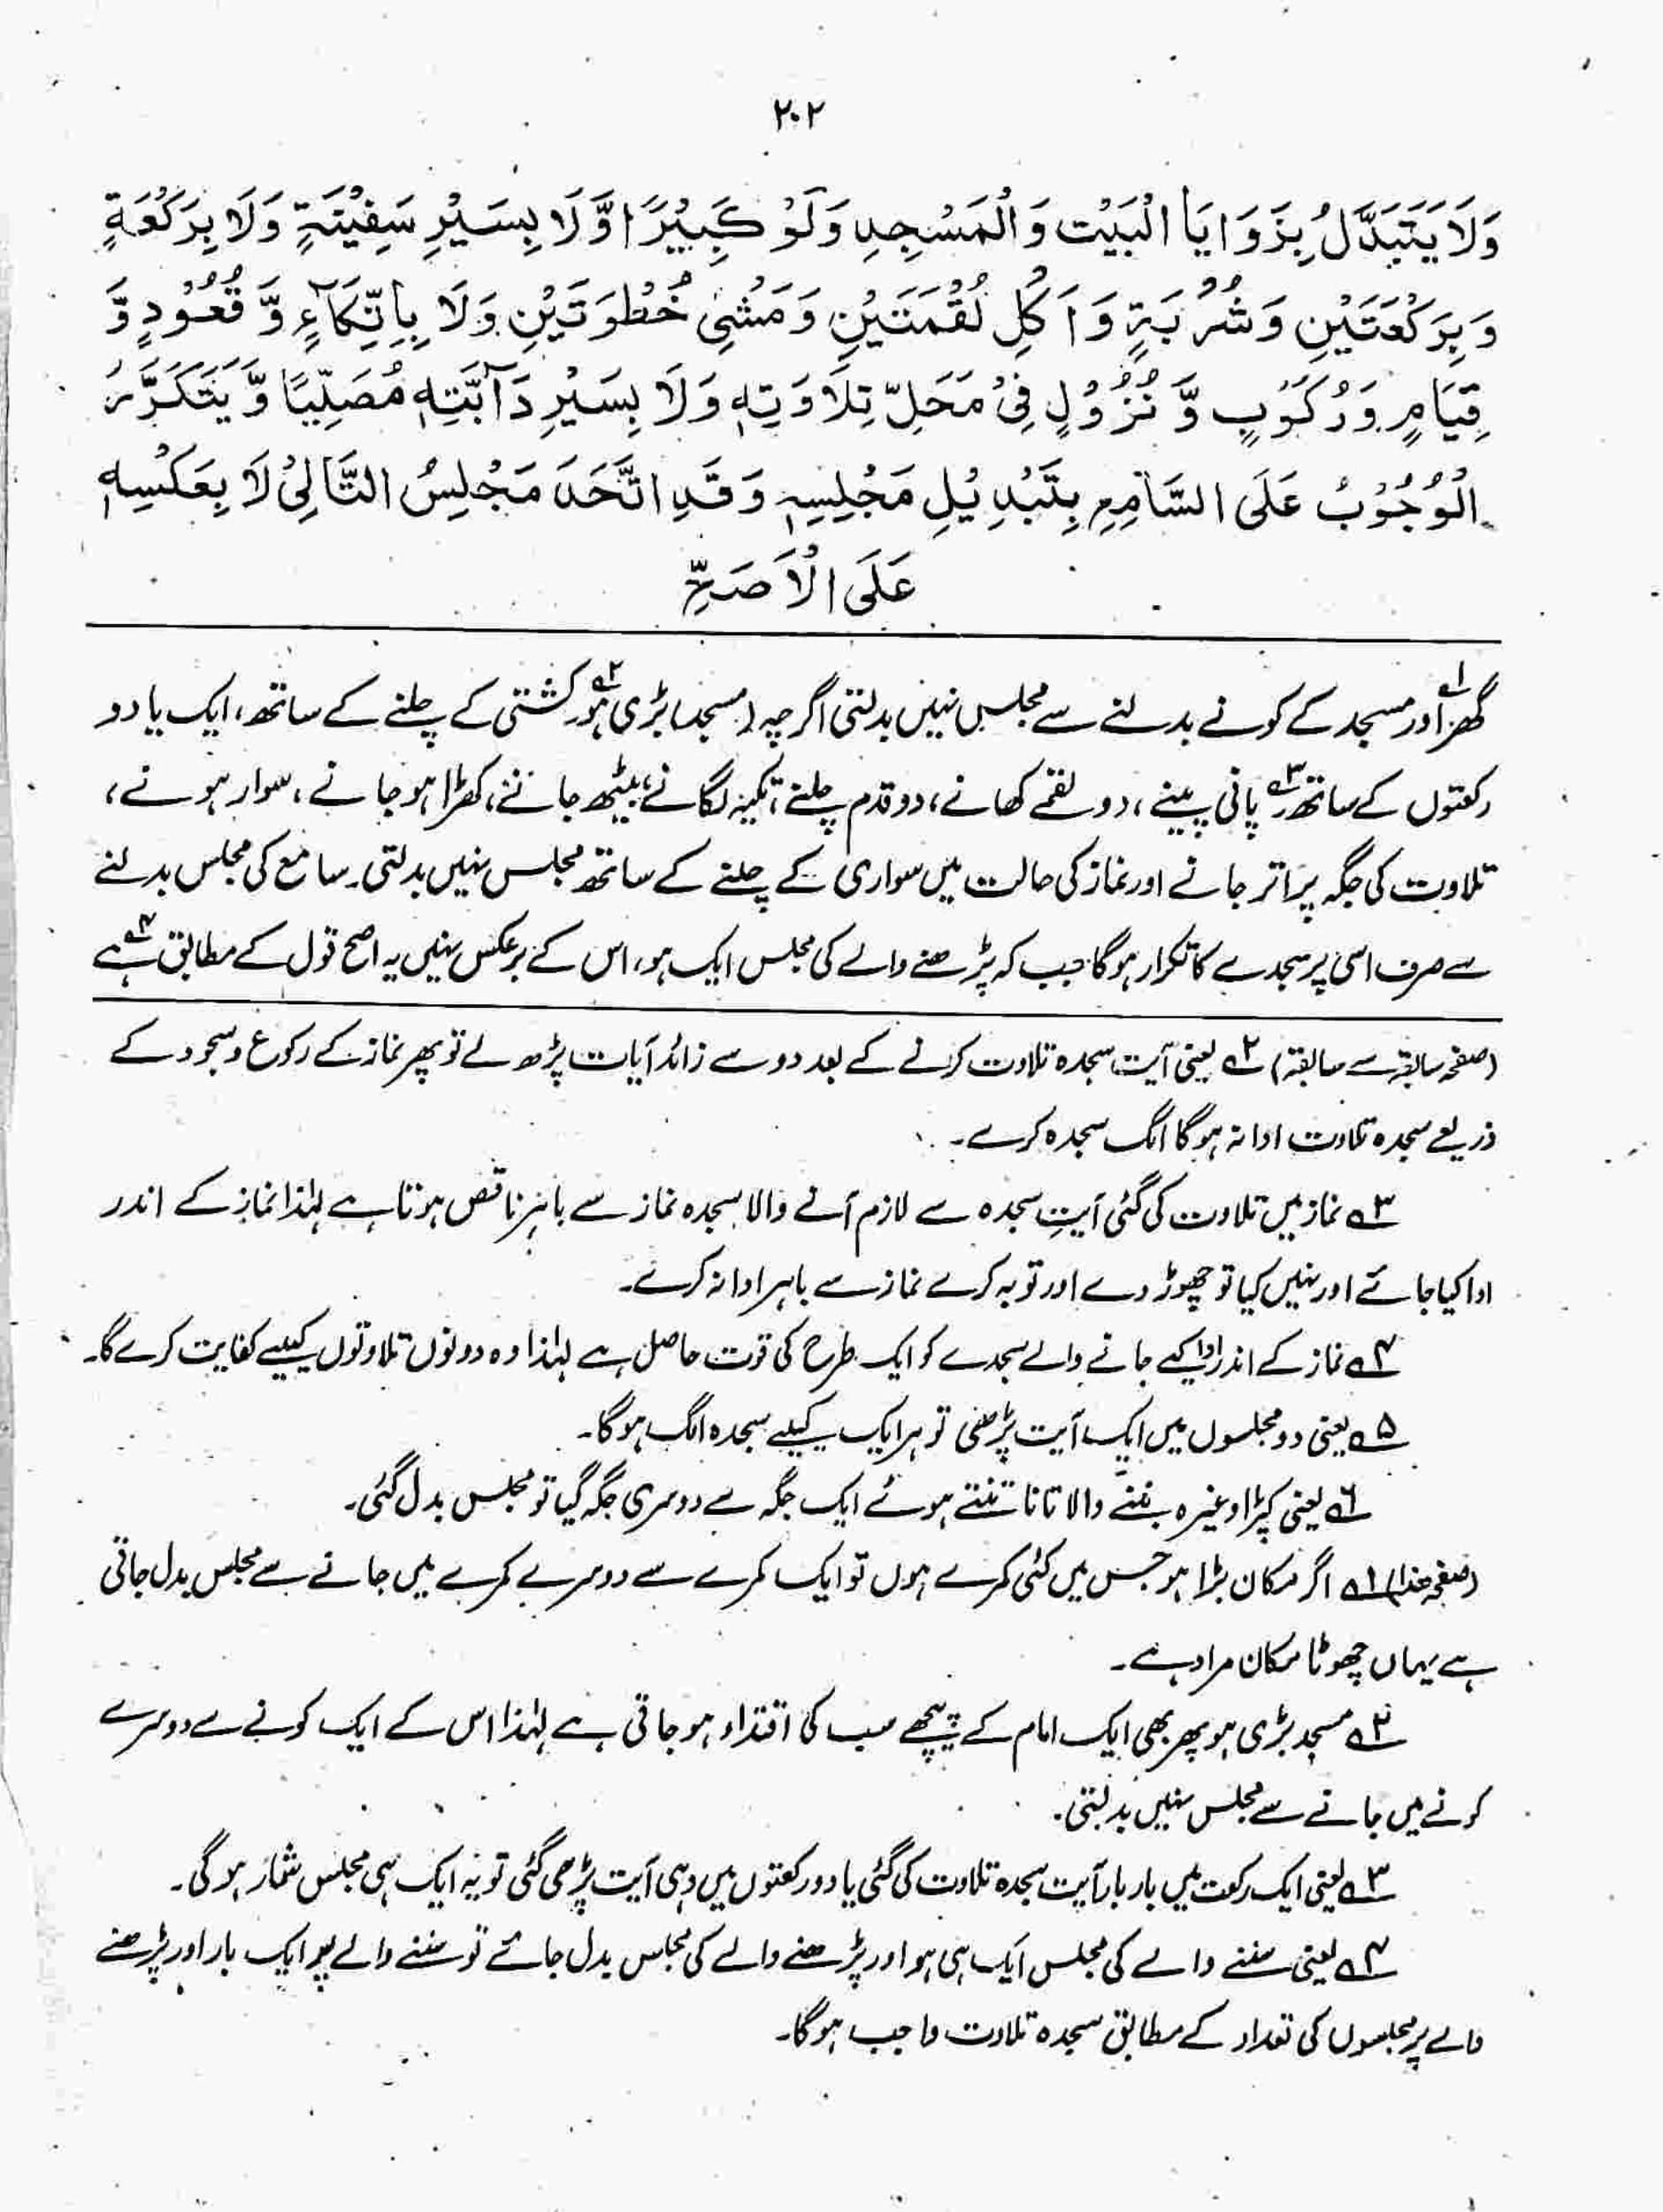 ۲۰۲
وَلَا يَتَبَدَّلُ بِزَوَايَا الْبَيْتِ وَالْمَسْجِدِ وَلَوْ كَبِيْرًا وَّلَا بِسَيْرِ سَفِيْنَةٍ وَلَا بِرَكْعَةٍ
وَبِرَكْعَتَيْنِ وَشُرْبَةٍ وَاَكْلِ لُقْمَتَيْنِ وَمَشْىِ خُطْوَتَيْنِ وَلَا بِاِتِّكَاءٍ وَّقُعُوْدٍ وَّ
قِيَامٍ وَرُكُوْبٍ وَّنُزُوْلٍ فِىْ مَحَلِّ تِلَاوَتِهٖ وَلَا بِسَيْرِ دَآبَّتِهٖ مُصَلِّيًا وَّيَتَكَرَّرُ
الْوُجُوْبُ عَلَى السَّامِعِ بِتَبْدِيْلِ مَجْلِسِهٖ وَقَدِ اتَّحَدَ مَجْلِسُ التَّالِىْ لَا بِعَكْسِهٖ
عَلَى الْاَصَحِّ
گھر۱؎ اور مسجد کے کونے بدلنے سے مجلس نہیں بدلتی اگرچہ (مسجد) بڑی ہو۲؎ کشتی کے چلنے کے ساتھ، ایک یا دو
رکعتوں کے ساتھ۳؎، پانی پینے، دو لقمے کھانے، دو قدم چلنے، تکیہ لگانے، بیٹھ جانے، کھڑا ہو جانے، سوار ہونے،
تلاوت کی جگہ پر اتر جانے اور نماز کی حالت میں سواری کے چلنے کے ساتھ مجلس نہیں بدلتی۔ سامع کی مجلس بدلنے
سے صرف اسی پر سجدے کا تکرار ہوگا جب کہ پڑھنے والے کی مجلس ایک ہو، اس کے برعکس نہیں یہ اصح قول کے مطابق ہے۴؎
(صفحہ سابقہ سے سابقہ) ۲؎ یعنی آیت سجدہ تلاوت کرنے کے بعد دو سے زائد آیات پڑھ لے تو پھر نماز کے رکوع و سجود کے
ذریعے سجدہ تلاوت ادا نہ ہوگا الگ سجدہ کرے۔
۳؎ نماز میں تلاوت کی گئی آیتِ سجدہ سے لازم آنے والا سجدہ نماز سے باہر ناقص ہوتا ہے لہٰذا نماز کے اندر
ادا کیا جائے اور نہیں کیا تو چھوڑ دے اور توبہ کرے نماز سے باہر ادا نہ کرے۔
۴؎ نماز کے اندر ادا کیے جانے والے سجدے کو ایک طرح کی قوت حاصل ہے لہٰذا وہ دونوں تلاوتوں کیلیے کفایت کرے گا۔
۵؎ یعنی دو مجلسوں میں ایک آیت پڑھی تو ہر ایک کیلیے سجدہ الگ ہوگا۔
۶؎ یعنی کپڑا وغیرہ بننے والا تانا تنتے ہوئے ایک جگہ سے دوسری جگہ گیا تو مجلس بدل گئی۔
(صفحہ ھذا) ۱؎ اگر مکان بڑا ہو جس میں کئی کمرے ہوں تو ایک کمرے سے دوسرے کمرے میں جانے سے مجلس بدل جاتی
ہے یہاں چھوٹا مکان مراد ہے۔
۲؎ مسجد بڑی ہو پھر بھی ایک امام کے پیچھے سب کی اقتداء ہو جاتی ہے لہٰذا اس کے ایک کونے سے دوسرے
کونے میں جانے سے مجلس نہیں بدلتی۔
۳؎ یعنی ایک رکعت میں بار بار آیت سجدہ تلاوت کی گئی یا دو رکعتوں میں وہی آیت پڑھی گئی تو یہ ایک ہی مجلس شمار ہوگی۔
۴؎ یعنی سننے والے کی مجلس ایک ہی ہو اور پڑھنے والے کی مجلس بدل جائے تو سننے والے پر ایک بار اور پڑھنے
والے پر مجلسوں کی تعداد کے مطابق سجدہ تلاوت واجب ہوگا۔